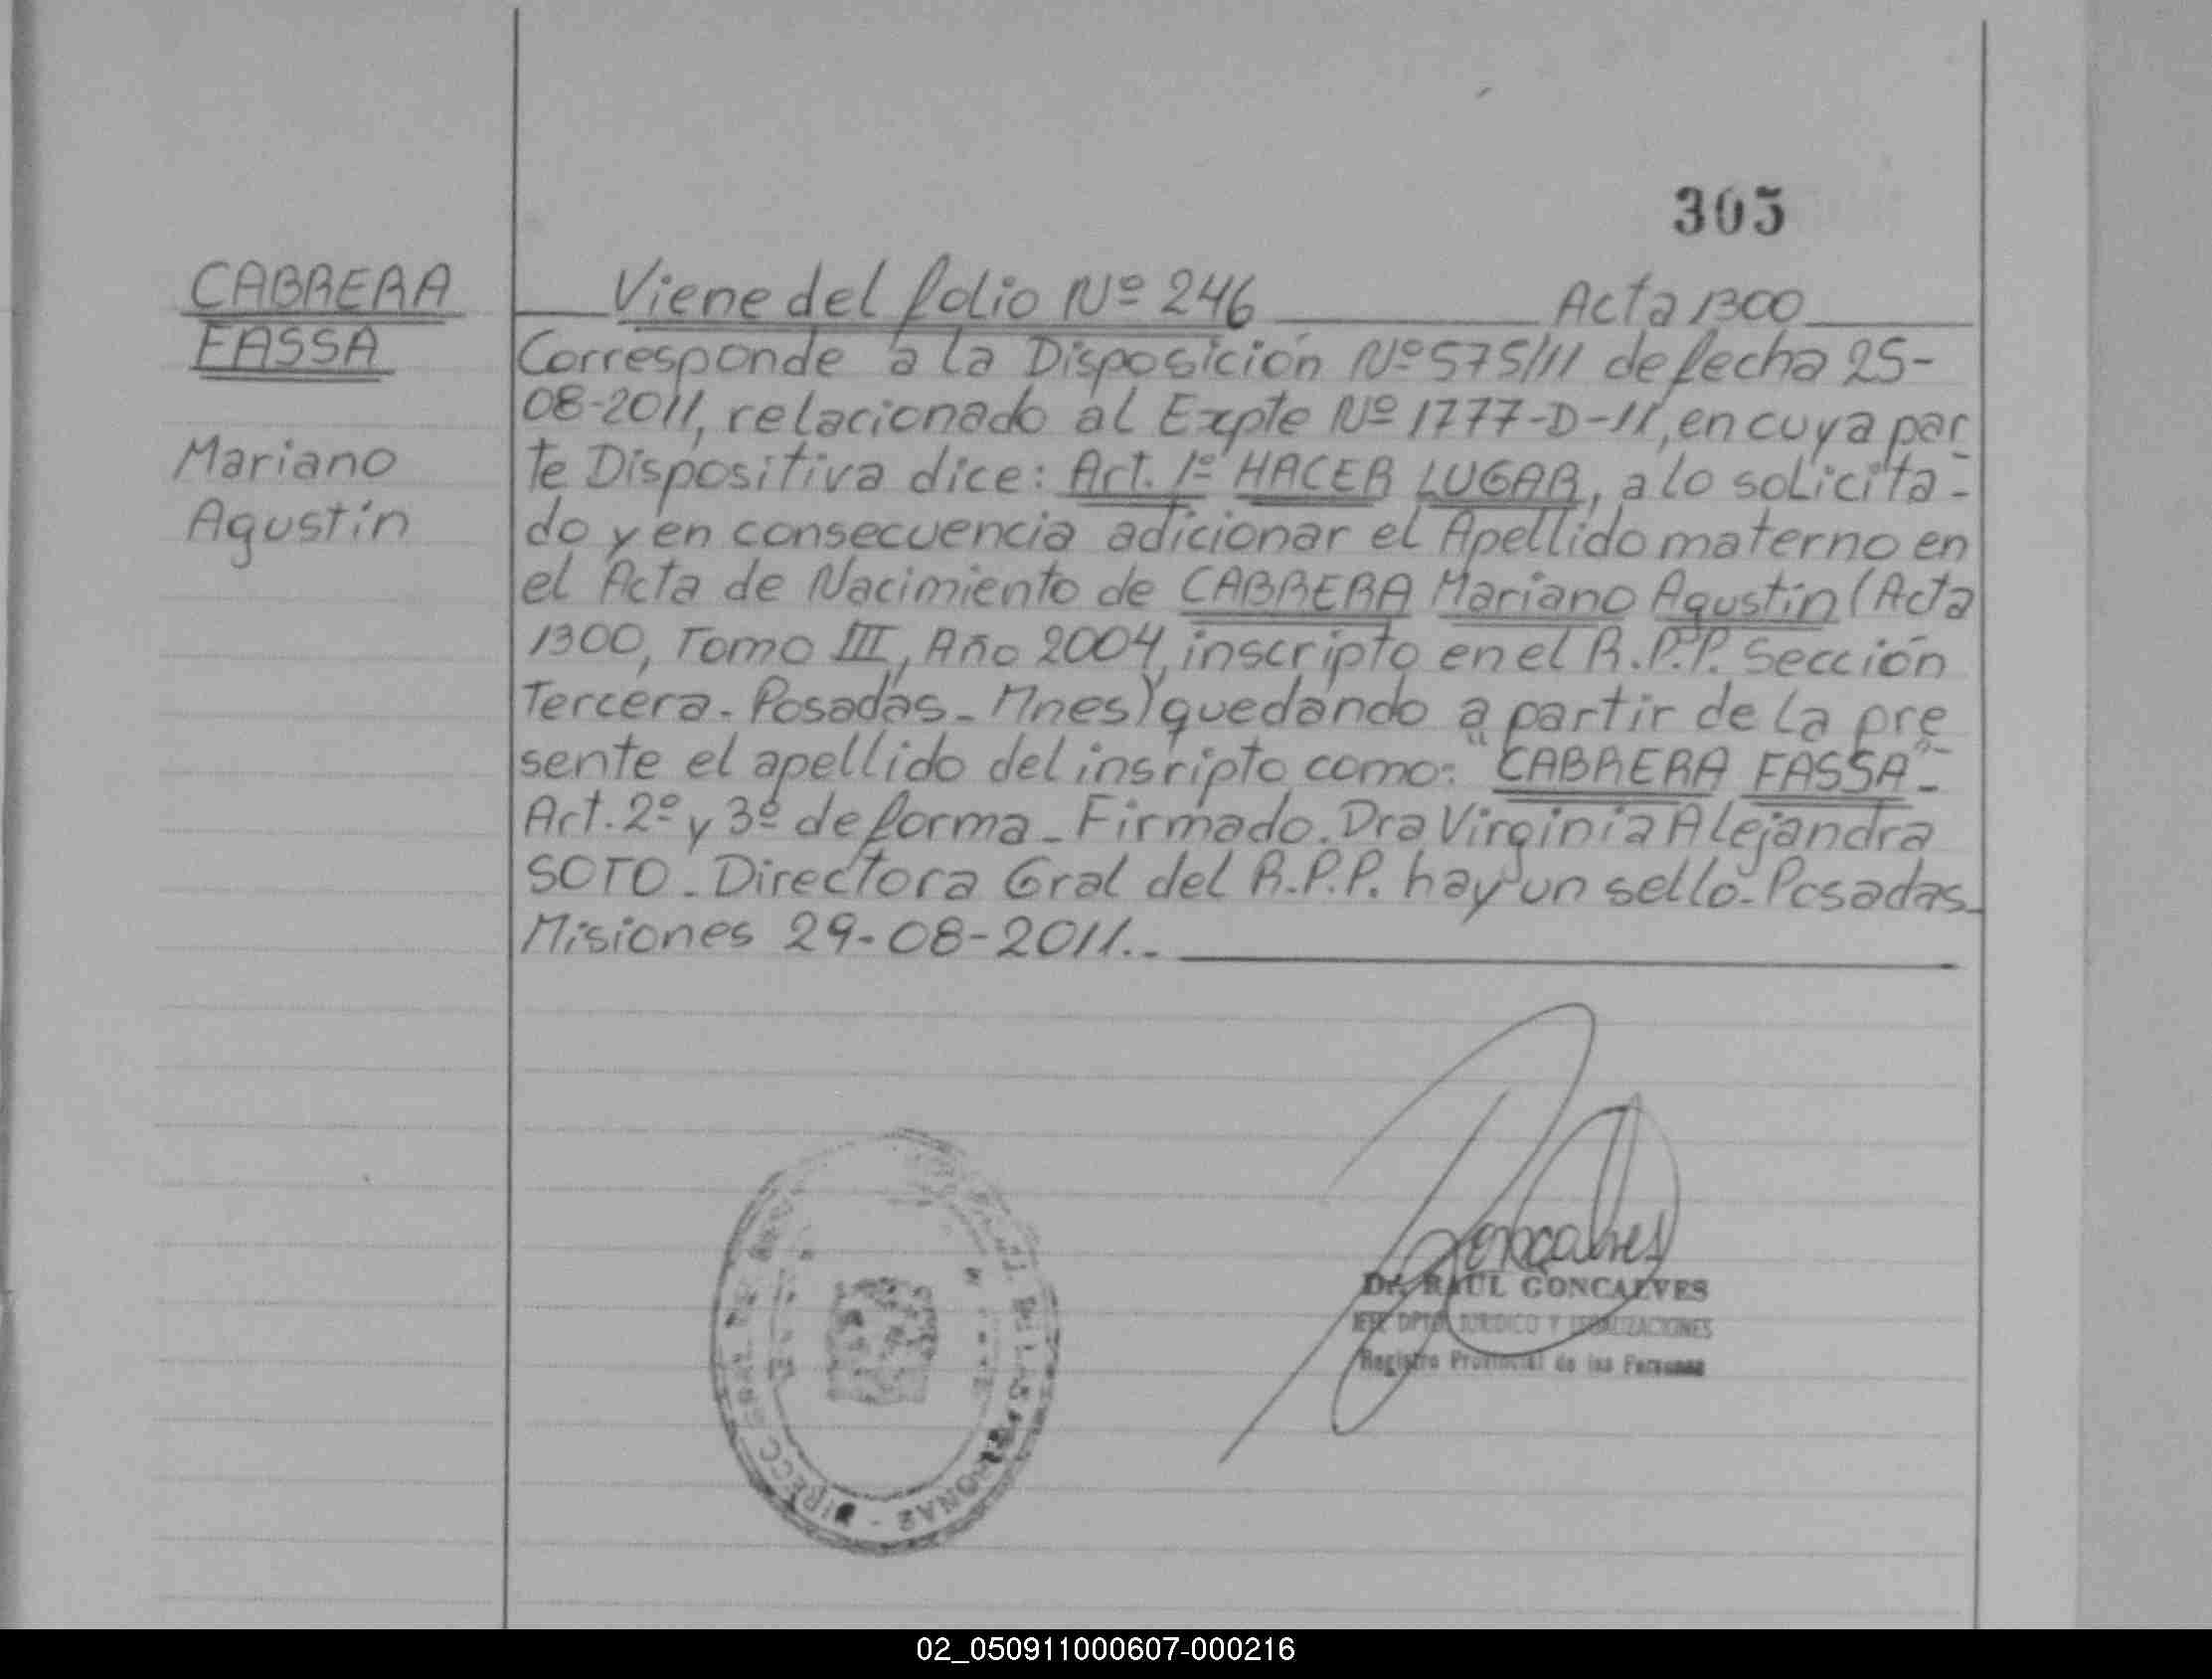 305
CABRERA
FASSA
Mariano
Agustín
Viene del folio Nº 246 Acta 1300
Corresponde a la Disposición Nº 575/11 de fecha 25-
08-2011, relacionado al Expte Nº 1777-D-11, en cuya par
te Dispositiva dice: Art. 1º HACER LUGAR, a lo solicita-
do y en consecuencia adicionar el Apellido materno en
el Acta de Nacimiento de CABRERA Mariano Agustín (Acta
1300, Tomo III, Año 2004, inscripto en el R.P.P. Sección
Tercera - Posadas - Mnes) quedando a partir de la pre
sente el apellido del inscripto como: "CABRERA FASSA"-
Art. 2º y 3º de forma - Firmado. Dra Virginia Alejandra
SOTO - Directora Gral del R.P.P. hay un sello - Posadas -
Misiones 29-08-2011.-
Goncalves
Dr. RAUL GONCALVES
JEFE DPTO JURIDICO Y LEGALIZACIONES
Registro Provincial de las Personas
DE LAS PERSONAS - DIRECC
02_050911000607-000216